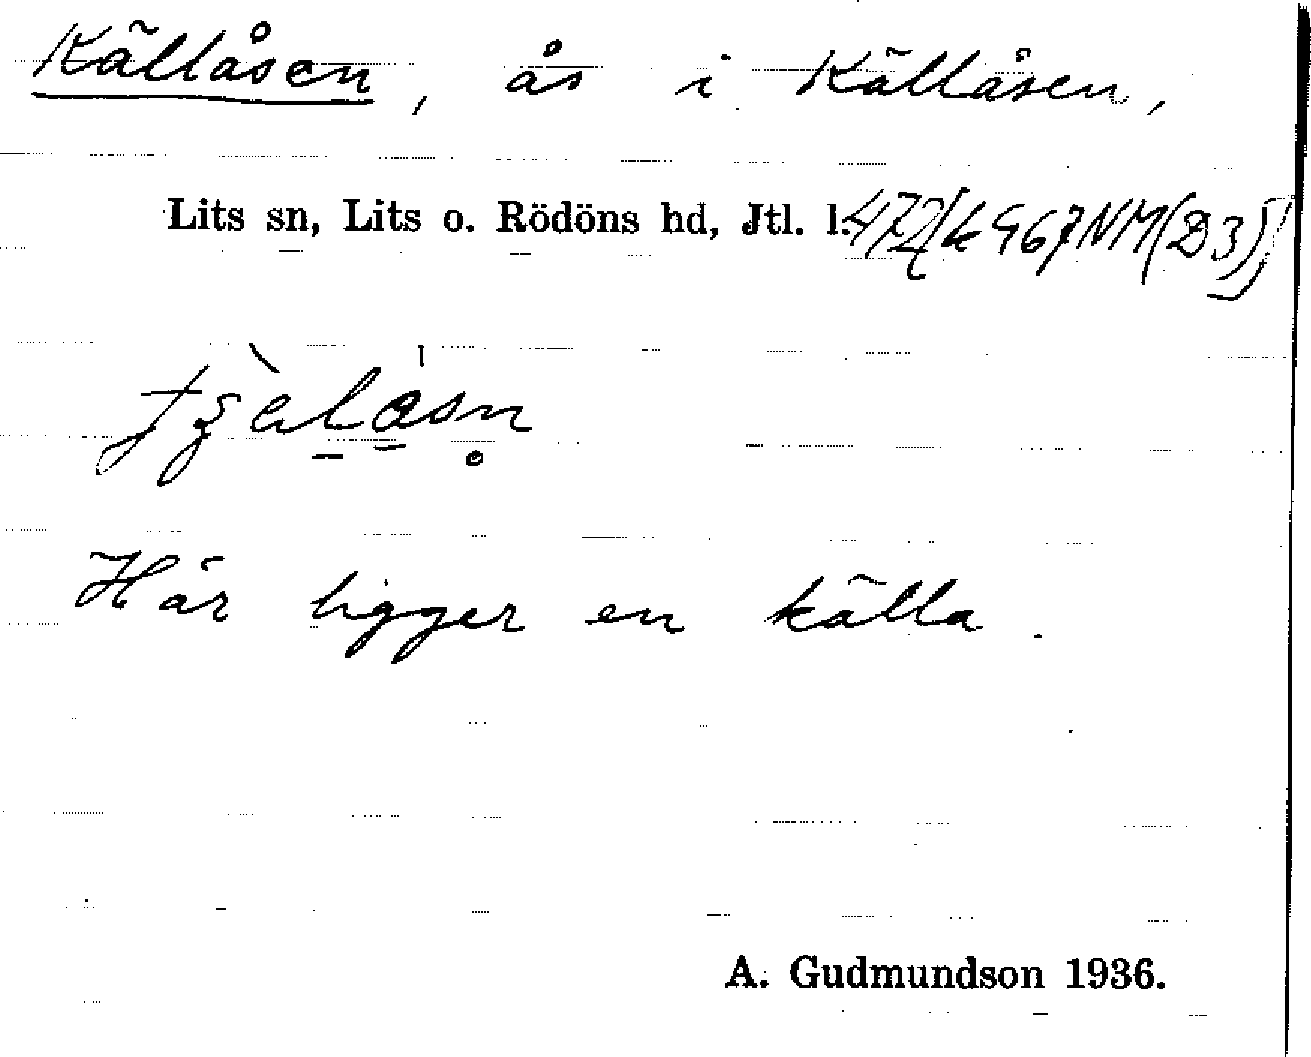 Källåsen, ås i Källåsen,
Lits sn, Lits o. Rödöns hd, Jtl. l.
Här ligger en källa.
A. Gudmundson 1936.